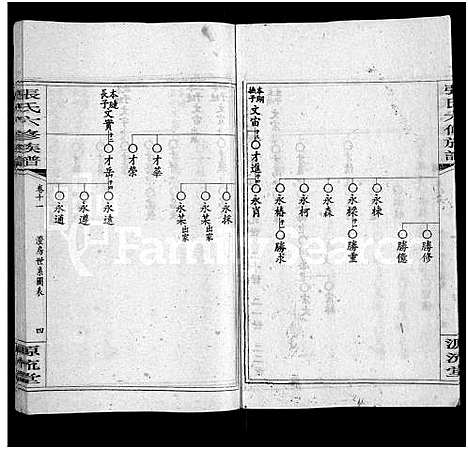 張氏六修族譜
源流堂
本期
撫子
文宙
才進
永肖
永椿
勝求
永柯
永森
永樑
勝重
永棟
勝億
勝修
張氏六修族譜
卷十一
世系圖表
四
源流堂
本璉
長子
文實
才岳
才榮
才華
永通
永遵
永遠
永某
永某出家
永採
FamilySearch